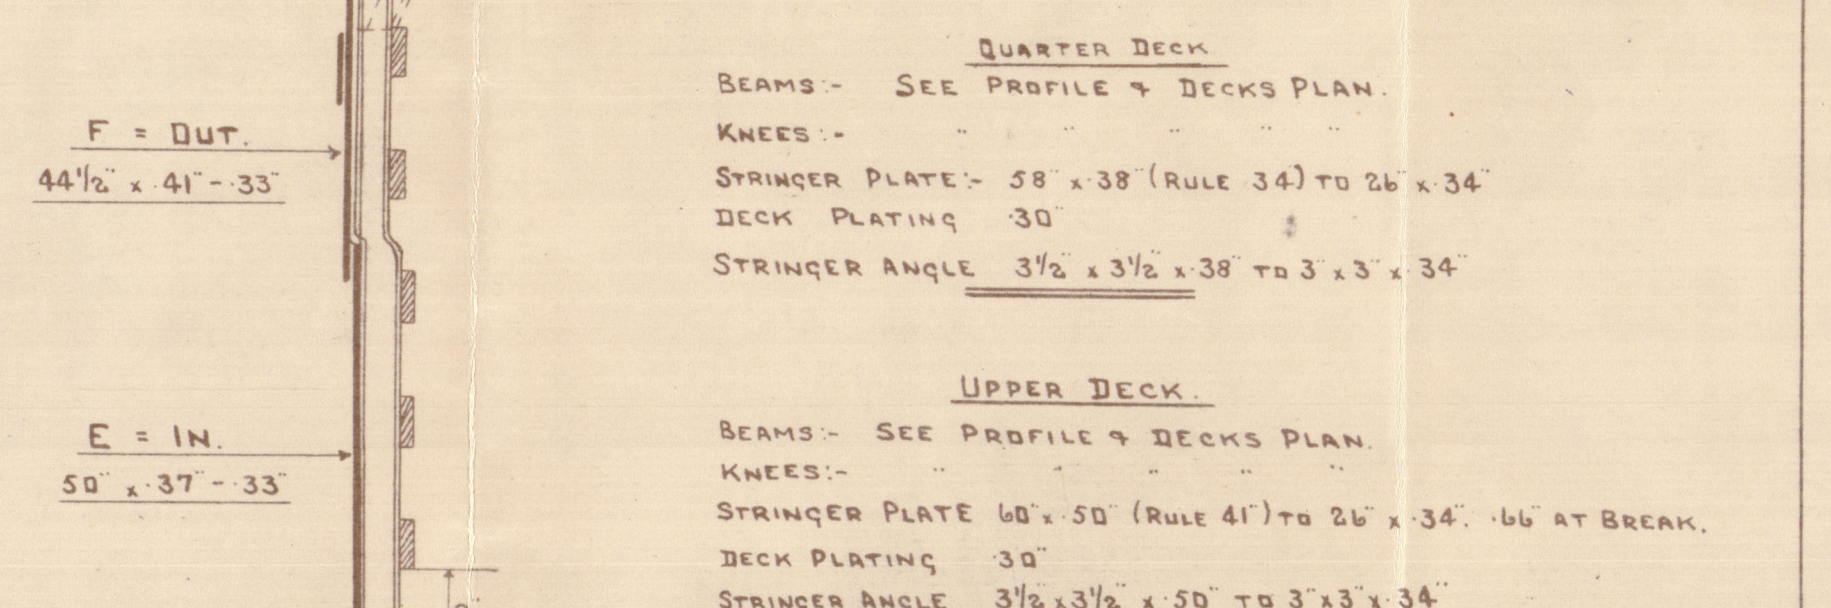 F = OUT.
44 1/2" x .41" - .33"
E = IN.
50" x .37" - .33"
QUARTER DECK
BEAMS:- SEE PROFILE & DECKS PLAN.
KNEES:- " " " " "
STRINGER PLATE:- 58" x .38" (RULE 34) TO 26" x .34"
DECK PLATING .30"
STRINGER ANGLE 3 1/2" x 3 1/2" x .38" TO 3" x 3" x .34"
UPPER DECK.
BEAMS:- SEE PROFILE & DECKS PLAN.
KNEES:- " " " " "
STRINGER PLATE 60" x .50" (RULE 41") TO 26" x .34". .66" AT BREAK.
DECK PLATING .30"
STRINGER ANGLE 3 1/2" x 3 1/2" x .50" TO 3" x 3" x .34"